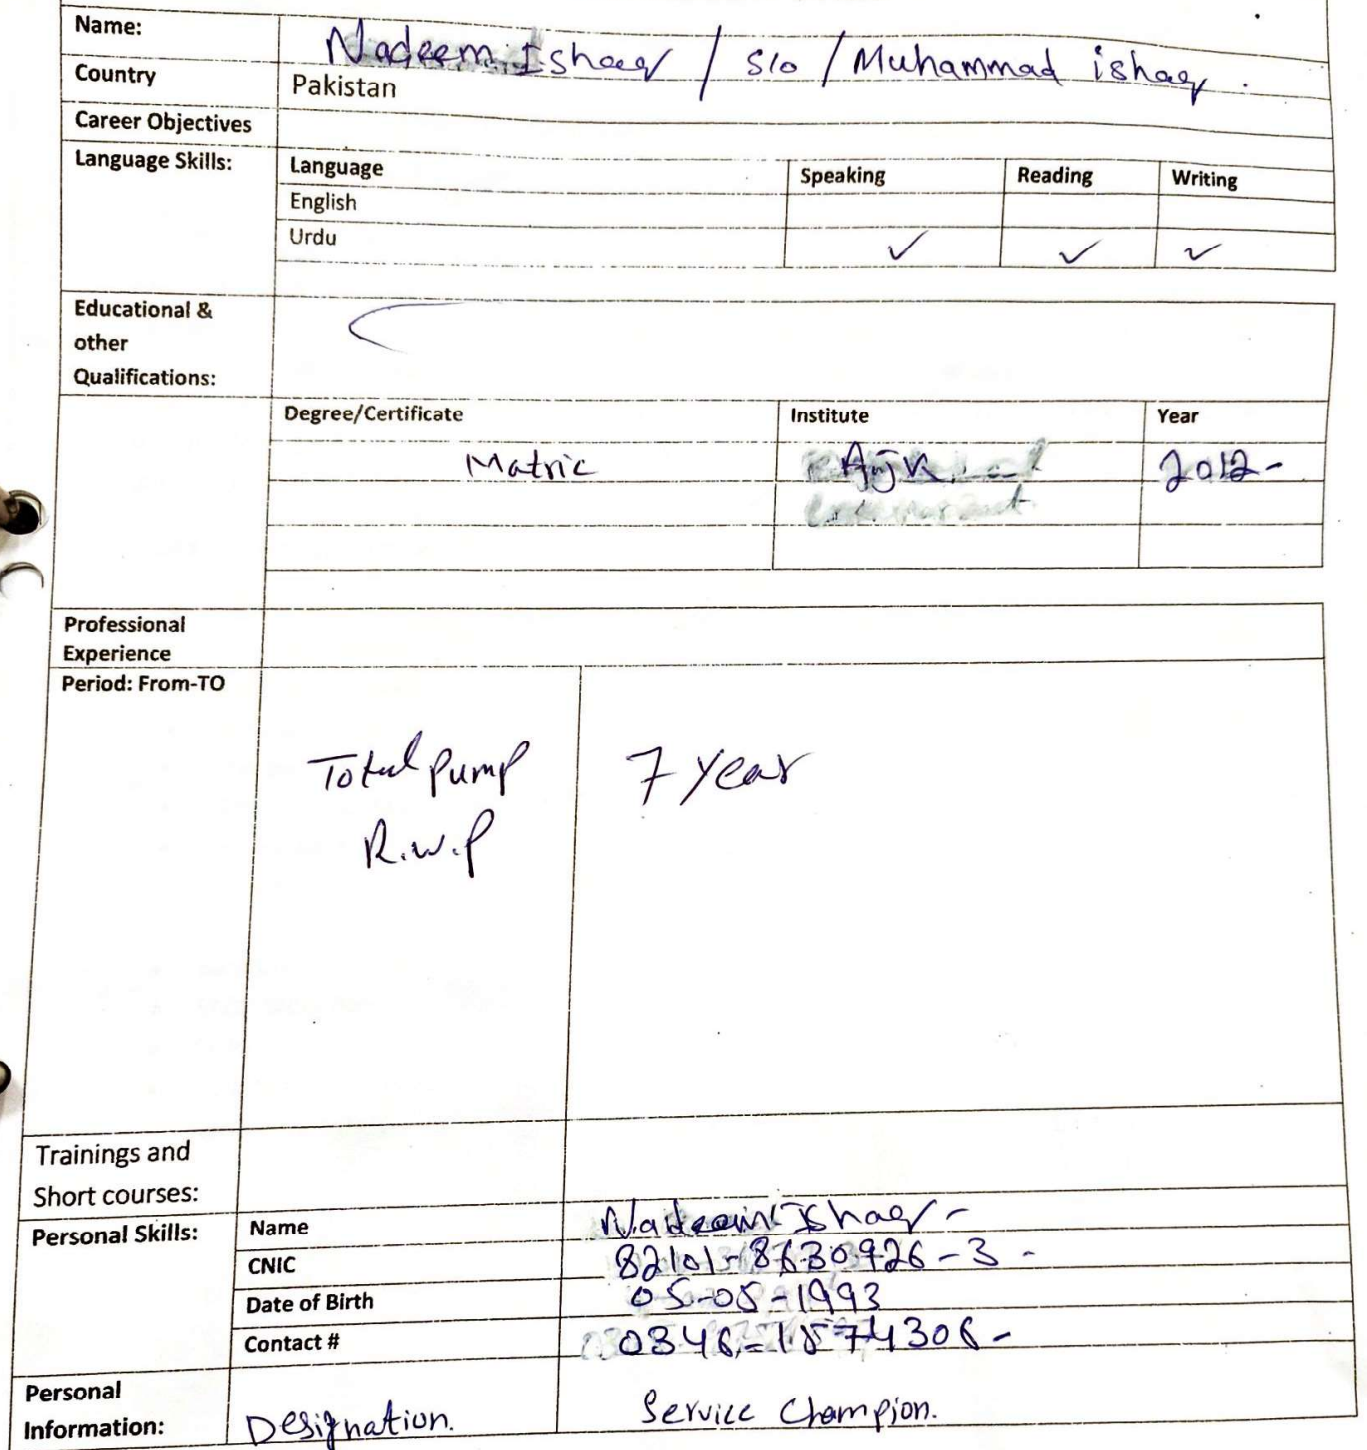 Name: Nadeem Ishaq / S/o / Muhammad ishaq.
Country Pakistan
Career Objectives
Language Skills: Language Speaking Reading Writing
English
Urdu ✓ ✓ ✓
Educational &
other
Qualifications:
Degree/Certificate Institute Year
Matric AJK 2012-
Professional
Experience
Period: From-TO
Total Pump 7 year
R.W.P
Trainings and
Short courses:
Personal Skills: Name Nadeem Ishaq -
CNIC 82101-8630926-3 -
Date of Birth 05-05-1993
Contact # 0346-1574306-
Personal
Information: Designation. Service Champion.